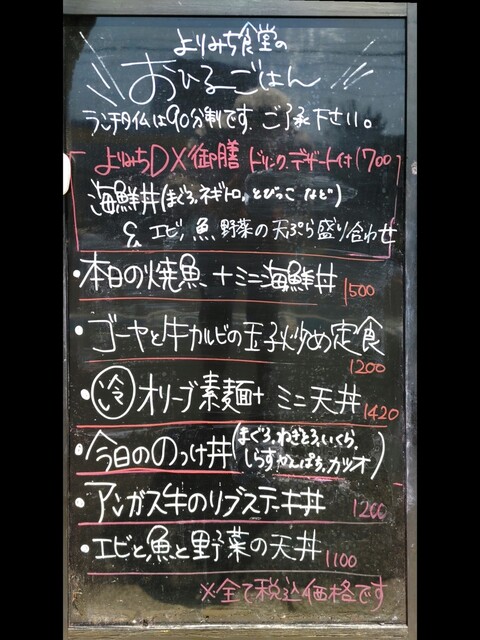 よりみち食堂の
おひるごはん
ランチタイムは90分制です。ご了承下さい。
よりみちDX御膳 ドリンク デザート付 1700
海鮮丼(まぐろ、ネギトロ、とびっこ など)
& エビ、魚、野菜の天ぷら盛り合わせ
・本日の焼魚 + ミニ海鮮丼 1500
・ゴーヤと牛カルビの玉子炒め定食
1200
・冷 オリーブ素麺+ ミニ天丼 1420
・今日ののっけ丼(まぐろ、ねぎとろ、いくら、
しらす、かんぱち、カツオ)
・アンガス牛のリブステーキ丼 1200
・エビと魚と野菜の天丼 1100
※全て税込価格です